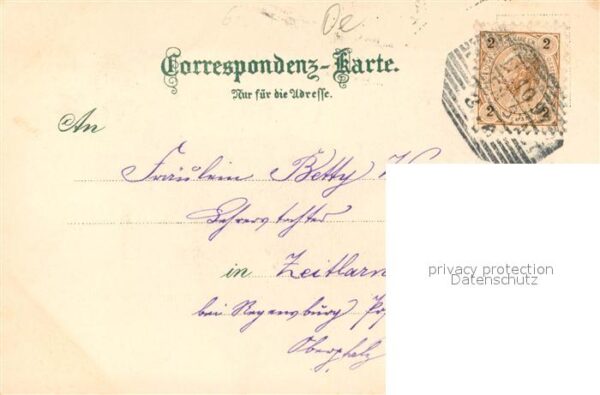 Correspondenz-Karte.
Nur für die Adresse.
2 2
2
An
Fräulein Betty
Lehrerstochter
in Zeitlarn
bei Regensburg
Oberpfalz
privacy protection
Datenschutz